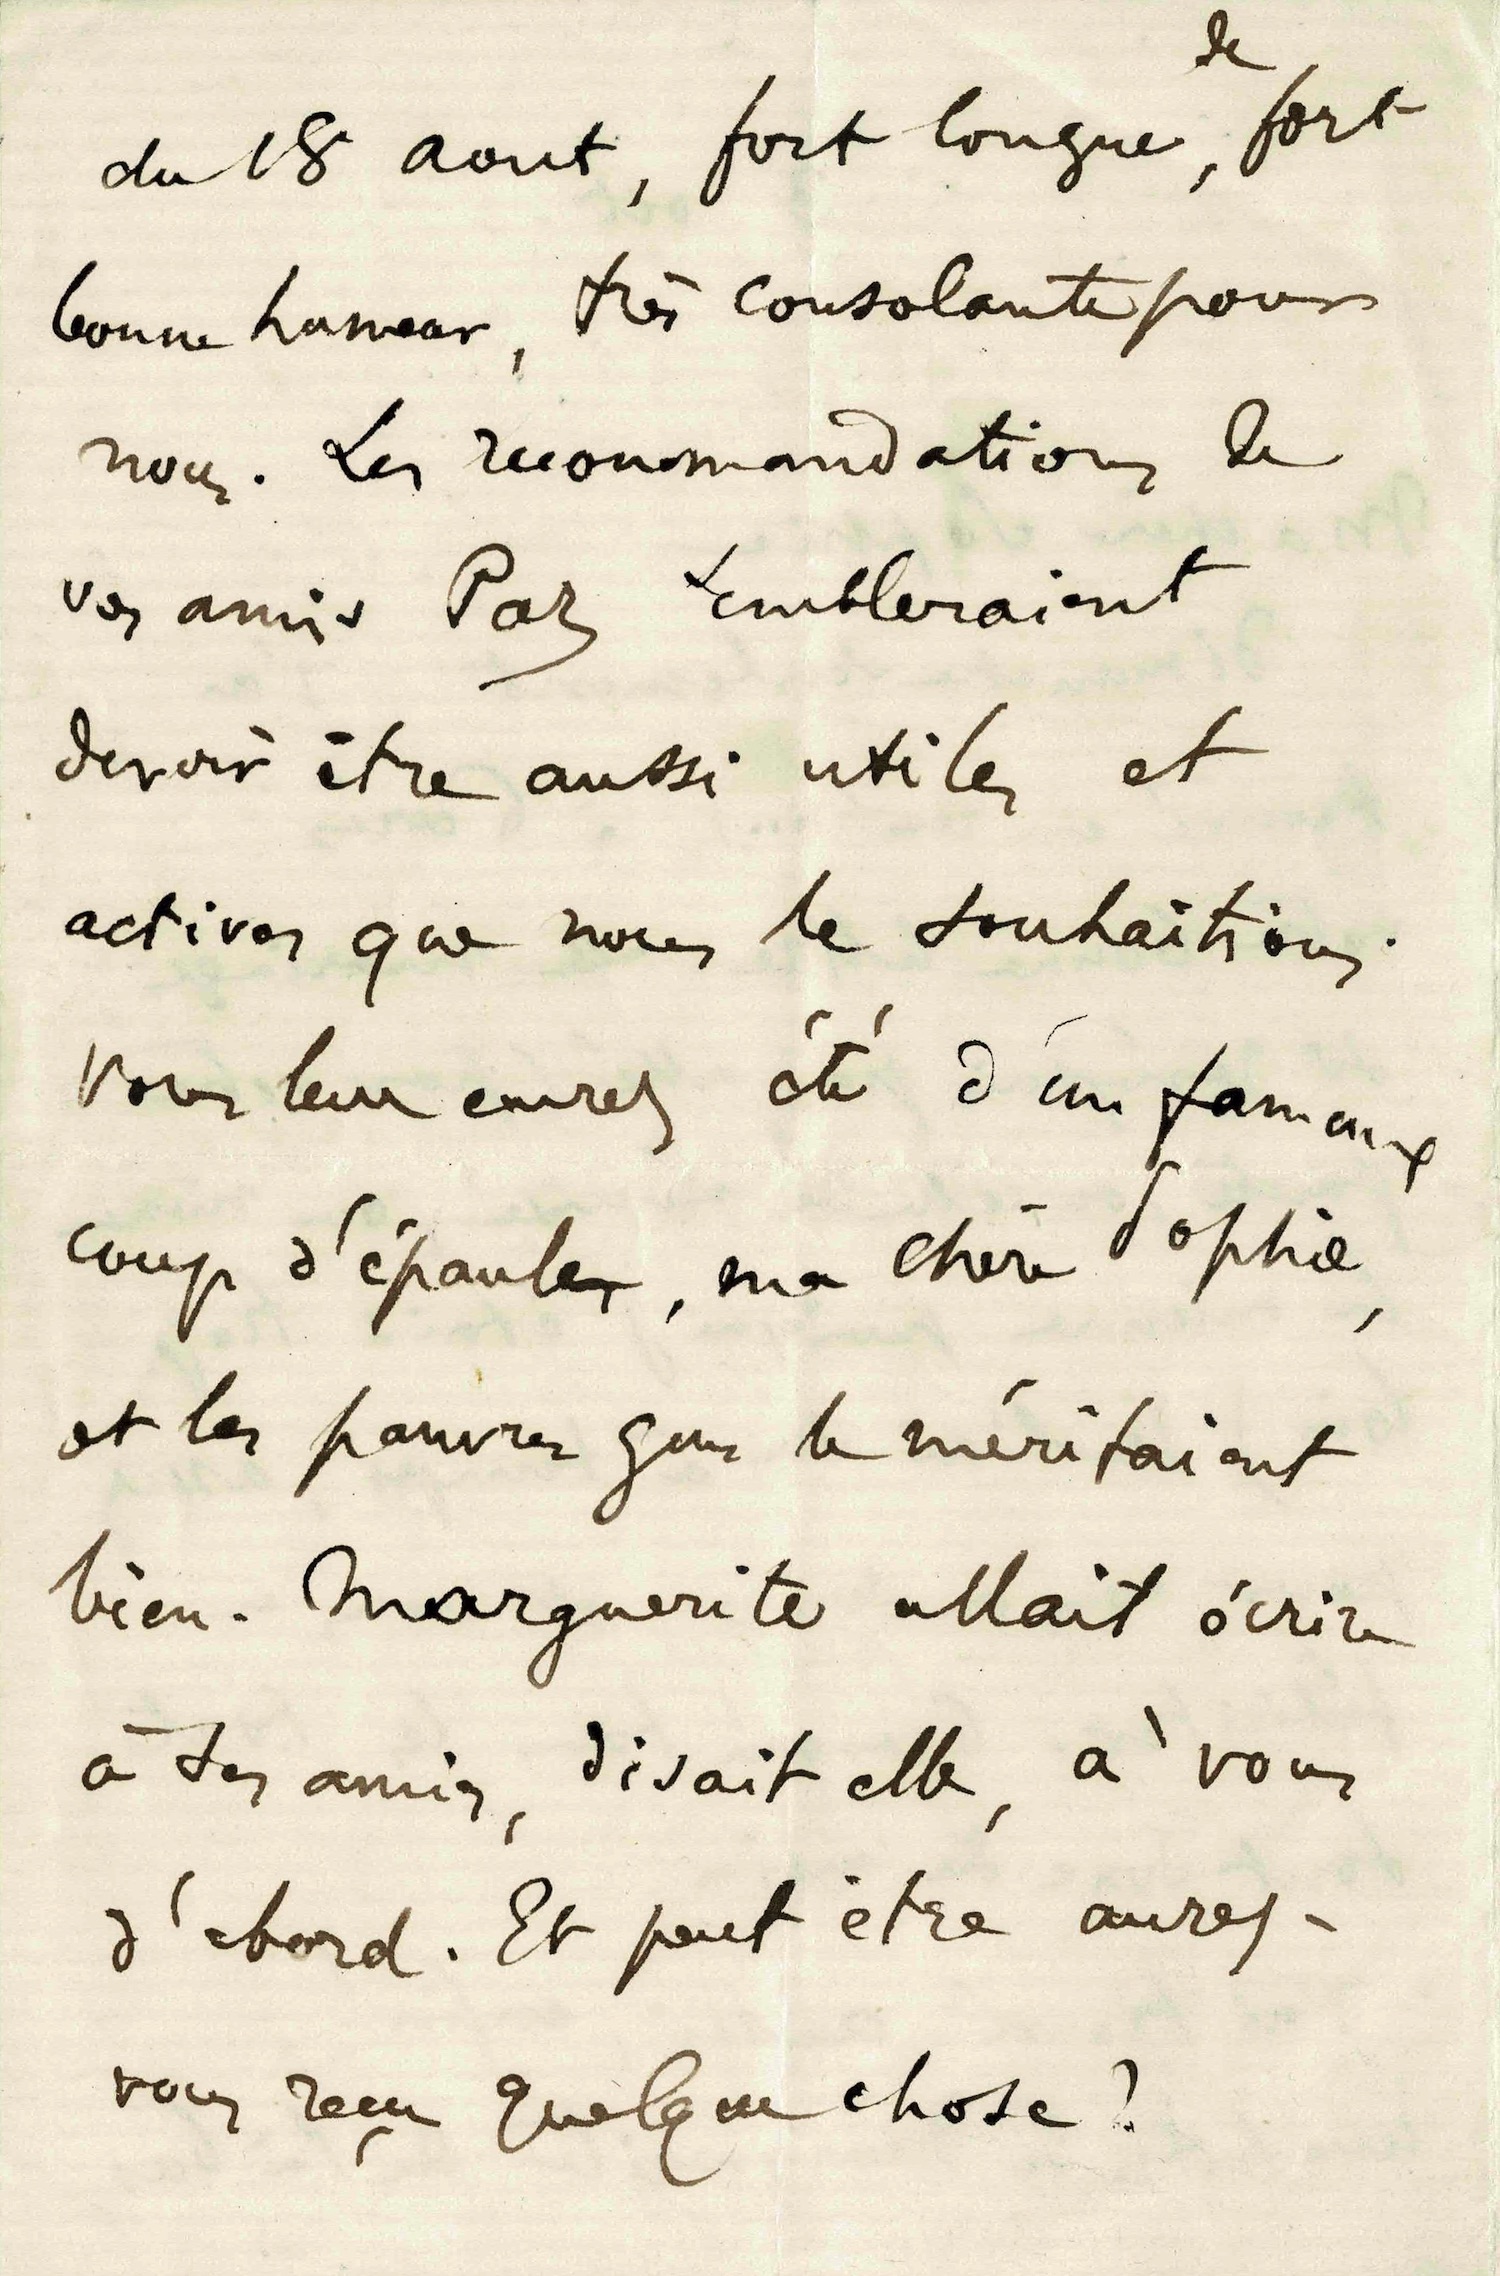 du 18 aout, fort longue, de fort
bonne humeur, très consolante pour
nous. Les recommandations de
vos amis Paz sembleraient
devoir être aussi utiles et
actives que nous le souhaitions.
Vous leur aurez été d'un fameux
coup d'épaules, ma chère Sophie,
et les pauvres gens le méritaient
bien. Marguerite allait écrire
à ses amis, disait elle, à vous
d'abord. Et peut être aurez-
vous reçu quelque chose?